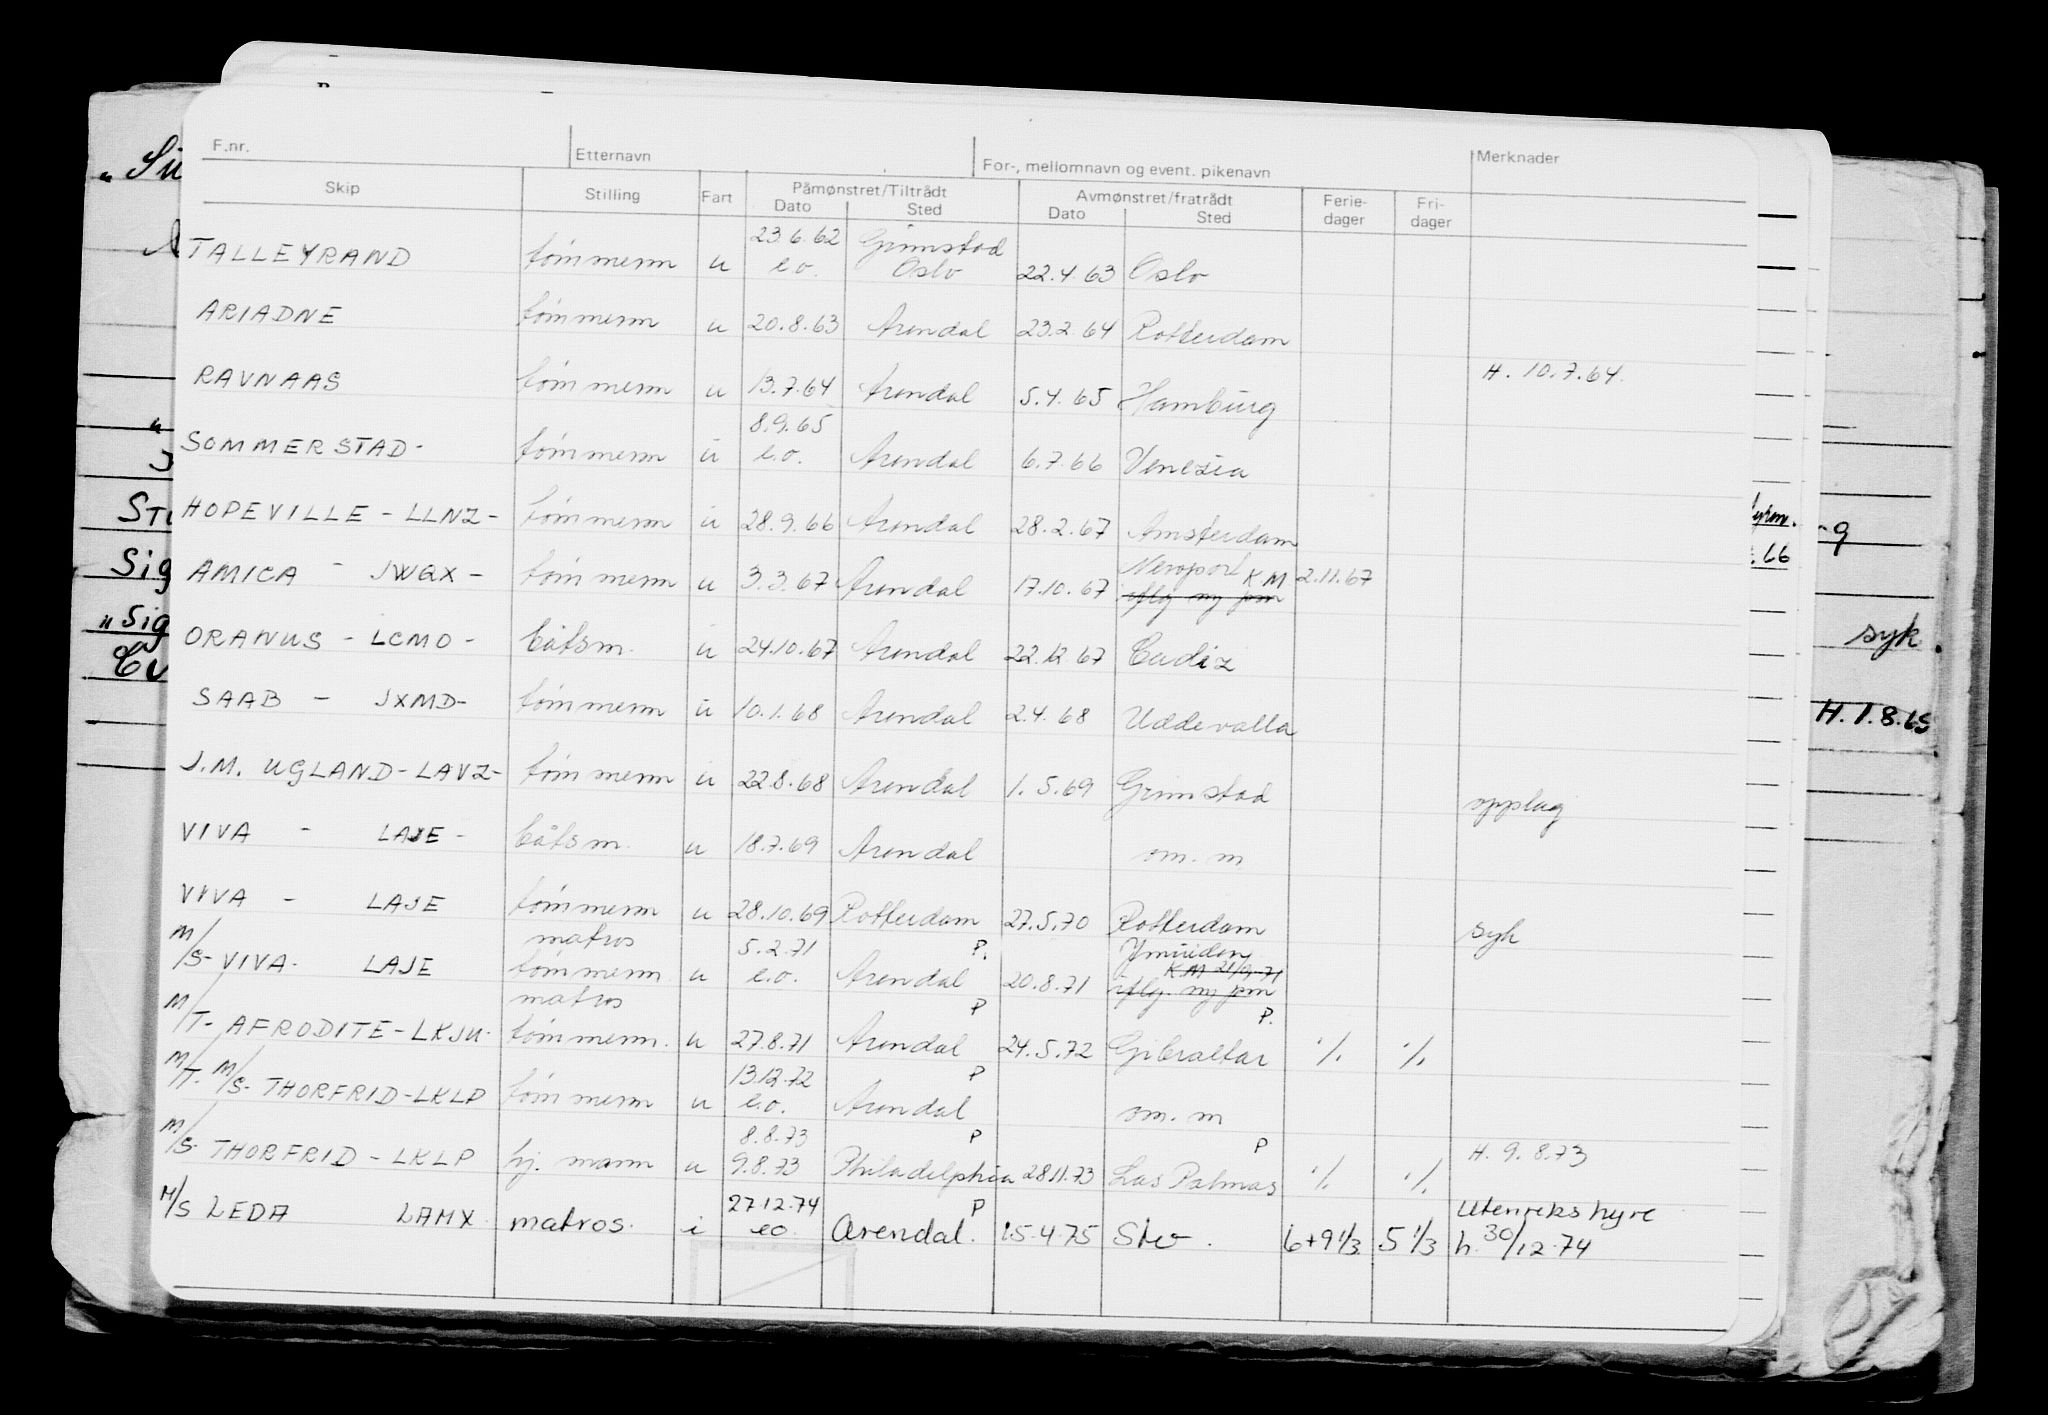 F.nr. Etternavn For-, mellomnavn og event. pikenavn Merknader
Skip Stilling Fart Påmønstret/Tiltrådt Avmønstret/fratrådt Ferie- Fri-
Dato Sted Dato Sted dager dager
23.6.62 Grimstad
TALLEYRAND tømmerm u e.o. Oslo 22.4.63 Oslo
ARIADNE tømmerm u 20.8.63 Arendal 23.2.64 Rotterdam
H. 10.7.64.
RAVNAAS tømmerm u 13.7.64 Arendal 5.4.65 Hamburg
8.9.65
SOMMERSTAD- tømmerm u e.o. Arendal 6.7.66 Venezia
HOPEVILLE - LLNZ- tømmerm u 28.9.66 Arendal 28.2.67 Amsterdam
Newport K.M 2.11.67
AMICA - JWQX - tømmerm u 3.3.67 Arendal 17.10.67 iflg ny pm
ORANUS - LCMO - båtsm. u 24.10.67 Arendal 22.12.67 Cadiz
SAAB - JXMD- tømmerm u 10.1.68 Arendal 2.4.68 Uddevalla
J.M. UGLAND-LAVZ- tømmerm u 22.8.68 Arendal 1.5.69 Grimstad
opplag
VIVA - LAJE - båtsm. u 18.7.69 Arendal om. m
VIVA - LAJE tømmerm u 28.10.69 Rotterdam 27.5.70 Rotterdam syk
matros 5.2.71 P. Ymuiden
K.M 21/9-71
M/S- VIVA- LAJE tømmerm u e.o. Arendal 20.8.71 iflg. ny pm
matros P P.
M/T- AFRODITE-LKJU- tømmerm. u 27.8.71 Arendal 24.5.72 Gibraltar % %
13.12.72 P
M/T. M/S- THORFRID-LKLP tømmerm u e.o. Arendal om. m
8.8.73 P P H. 9.8.73
M/S- THORFRID - LKLP hj. mann u 9.8.73 Philadelphia 28.11.73 Las Palmas % %
27.12.74 P Utenriks hyre
M/S LEDA LAMX matros. i eo Arendal. 15-4-75 Stv. 6+9 1/3 5 1/3 h. 30/12-74
"Sig
Sig
syk.
H. 1.8.65
.66